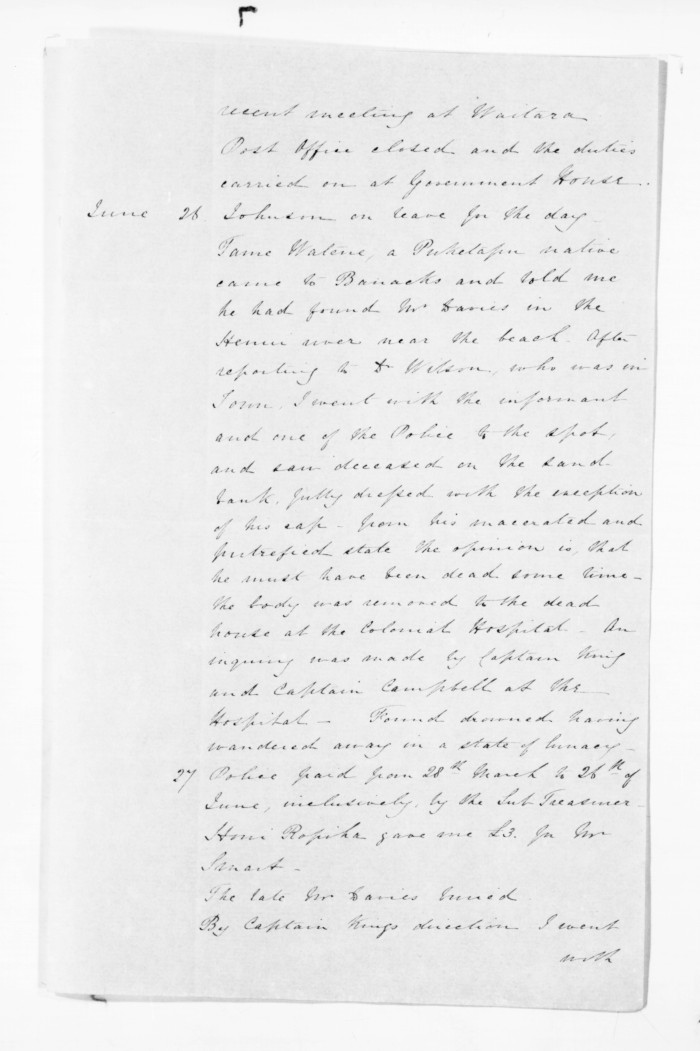 recent meeting at Waitara
Post Office closed and the duties
carried on at Government House.
June 26 Johnson on leave for the day
Tame Watene, a Puketapu native
came to Barracks and told me
he had found Mr Davies in the
Henui river near the beach. After
reporting to Dr Wilson, who was in
Town, I went with the informant
and one of the Police to the spot,
and saw deceased on the sand
bank, fully dressed with the exception
of his cap - from his macerated and
putrefied state the opinion is, that
he must have been dead some time -
the body was removed to the dead
house at the Colonial Hospital - An
inquiry was made by Captain King
and Captain Campbell at the
Hospital - Found drowned having
wandered away in a state of lunacy -
27 Police paid from 28th March to 26th of
June, inclusively, by the Sub Treasurer
Honi Ropiha gave me £3. for Mr
Smart -
The late Mr Davies buried
By Captain Kings direction I went
with